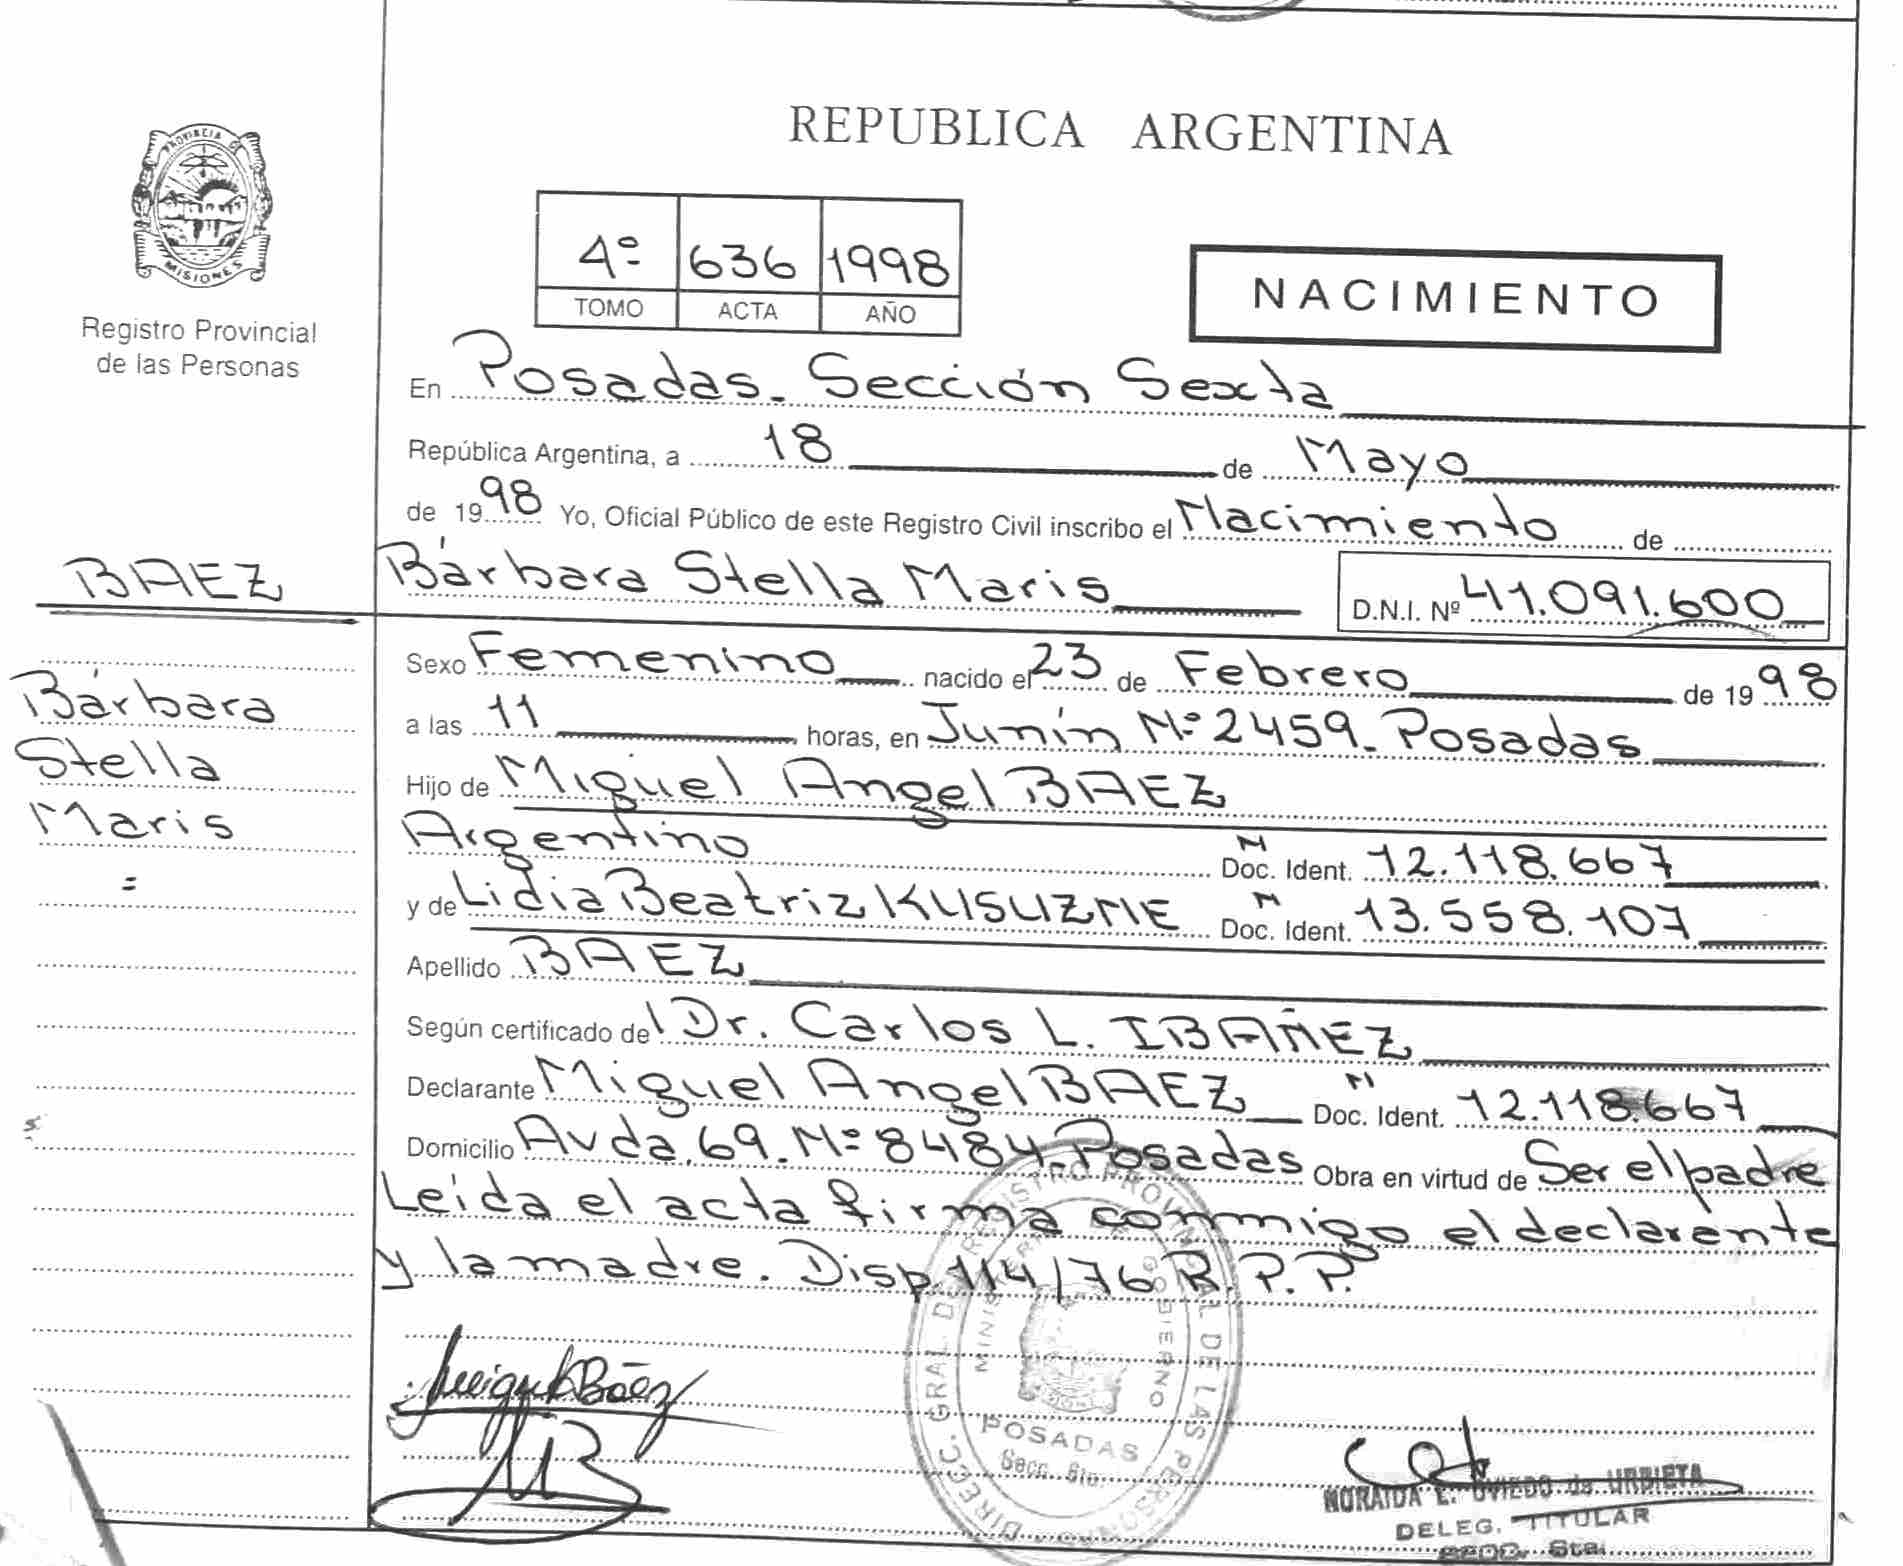 PROVINCIA DE
MISIONES
Registro Provincial
de las Personas
REPUBLICA ARGENTINA
4º 636 1998
TOMO ACTA AÑO
NACIMIENTO
En Posadas. Sección Sexta
República Argentina, a 18 de Mayo
de 1998 Yo, Oficial Público de este Registro Civil inscribo el Nacimiento de
BAEZ
Bárbara Stella Maris D.N.I. Nº 41.091.600
Bárbara
Stella
Maris
=
Sexo Femenino nacido el 23 de Febrero de 1998
a las 11 horas, en Junín Nº 2459. Posadas
Hijo de Miguel Angel BAEZ
Argentino N Doc. Ident. 12.118.667
y de Lidia Beatriz KUSUZNE N Doc. Ident. 13.558.107
Apellido BAEZ
Según certificado del Dr. Carlos L. IBAÑEZ
Declarante Miguel Angel BAEZ N Doc. Ident. 12.118.667
Domicilio Avda. 69. Nº 8484. Posadas Obra en virtud de Ser el padre
Leída el acta firma conmigo el declarante
y la madre. Disp. 114/76 R.P.P.
Miguel A Báez
DIRECC. GRAL. DE REGISTRO PROVINCIAL DE LAS PERSONAS
MINISTERIO DE GOBIERNO
POSADAS
Secc. 6ta.
NORAIDA E. OVIEDO de URBIETA
DELEG. TITULAR
SECC. 6ta.